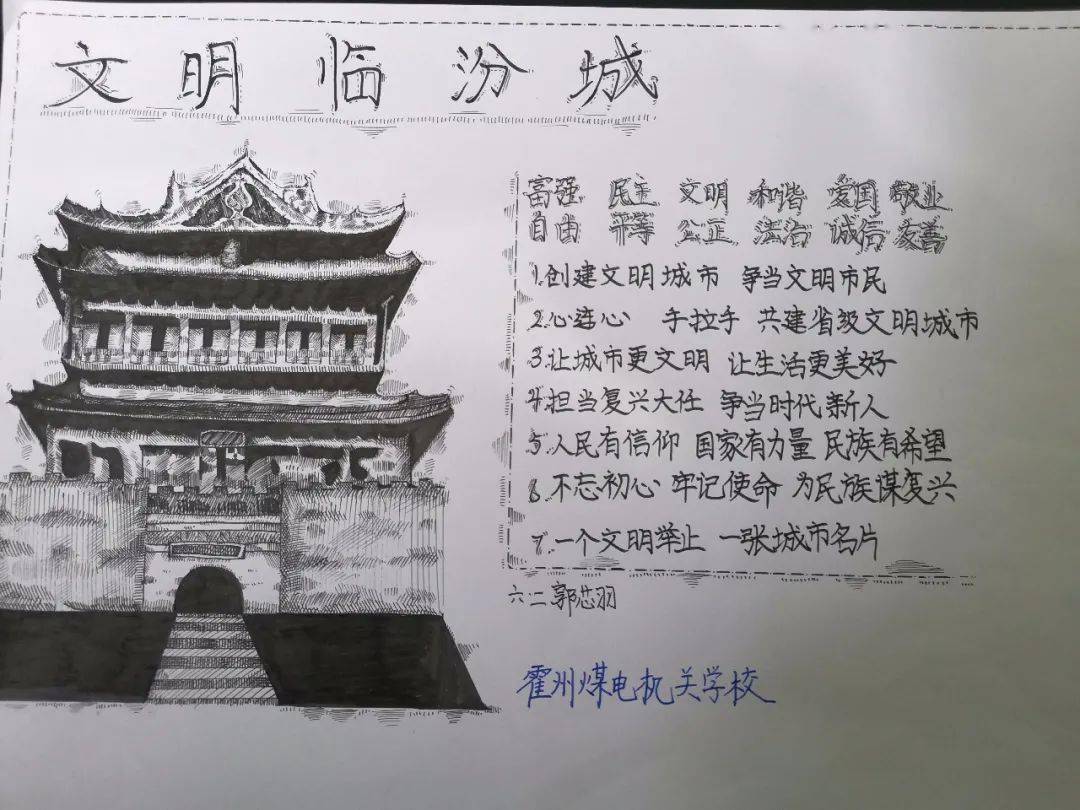 文明临汾城
富强 民主 文明 和谐 爱国 敬业
自由 平等 公正 法治 诚信 友善
1.创建文明城市 争当文明市民
2.心连心 手拉手 共建省级文明城市
3.让城市更文明 让生活更美好
4.担当复兴大任 争当时代新人
5.人民有信仰 国家有力量 民族有希望
6.不忘初心 牢记使命 为民族谋复兴
7.一个文明举止 一张城市名片
六二郭芯羽
霍州煤电机关学校